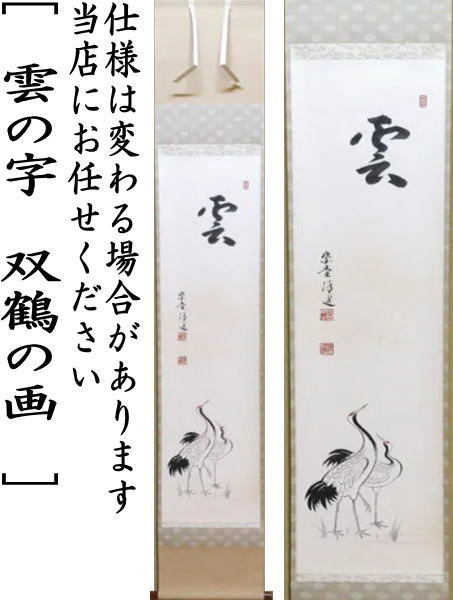 仕様は変わる場合があります
当店にお任せください
［ 雲の字 双鶴の画 ］
雲
雲